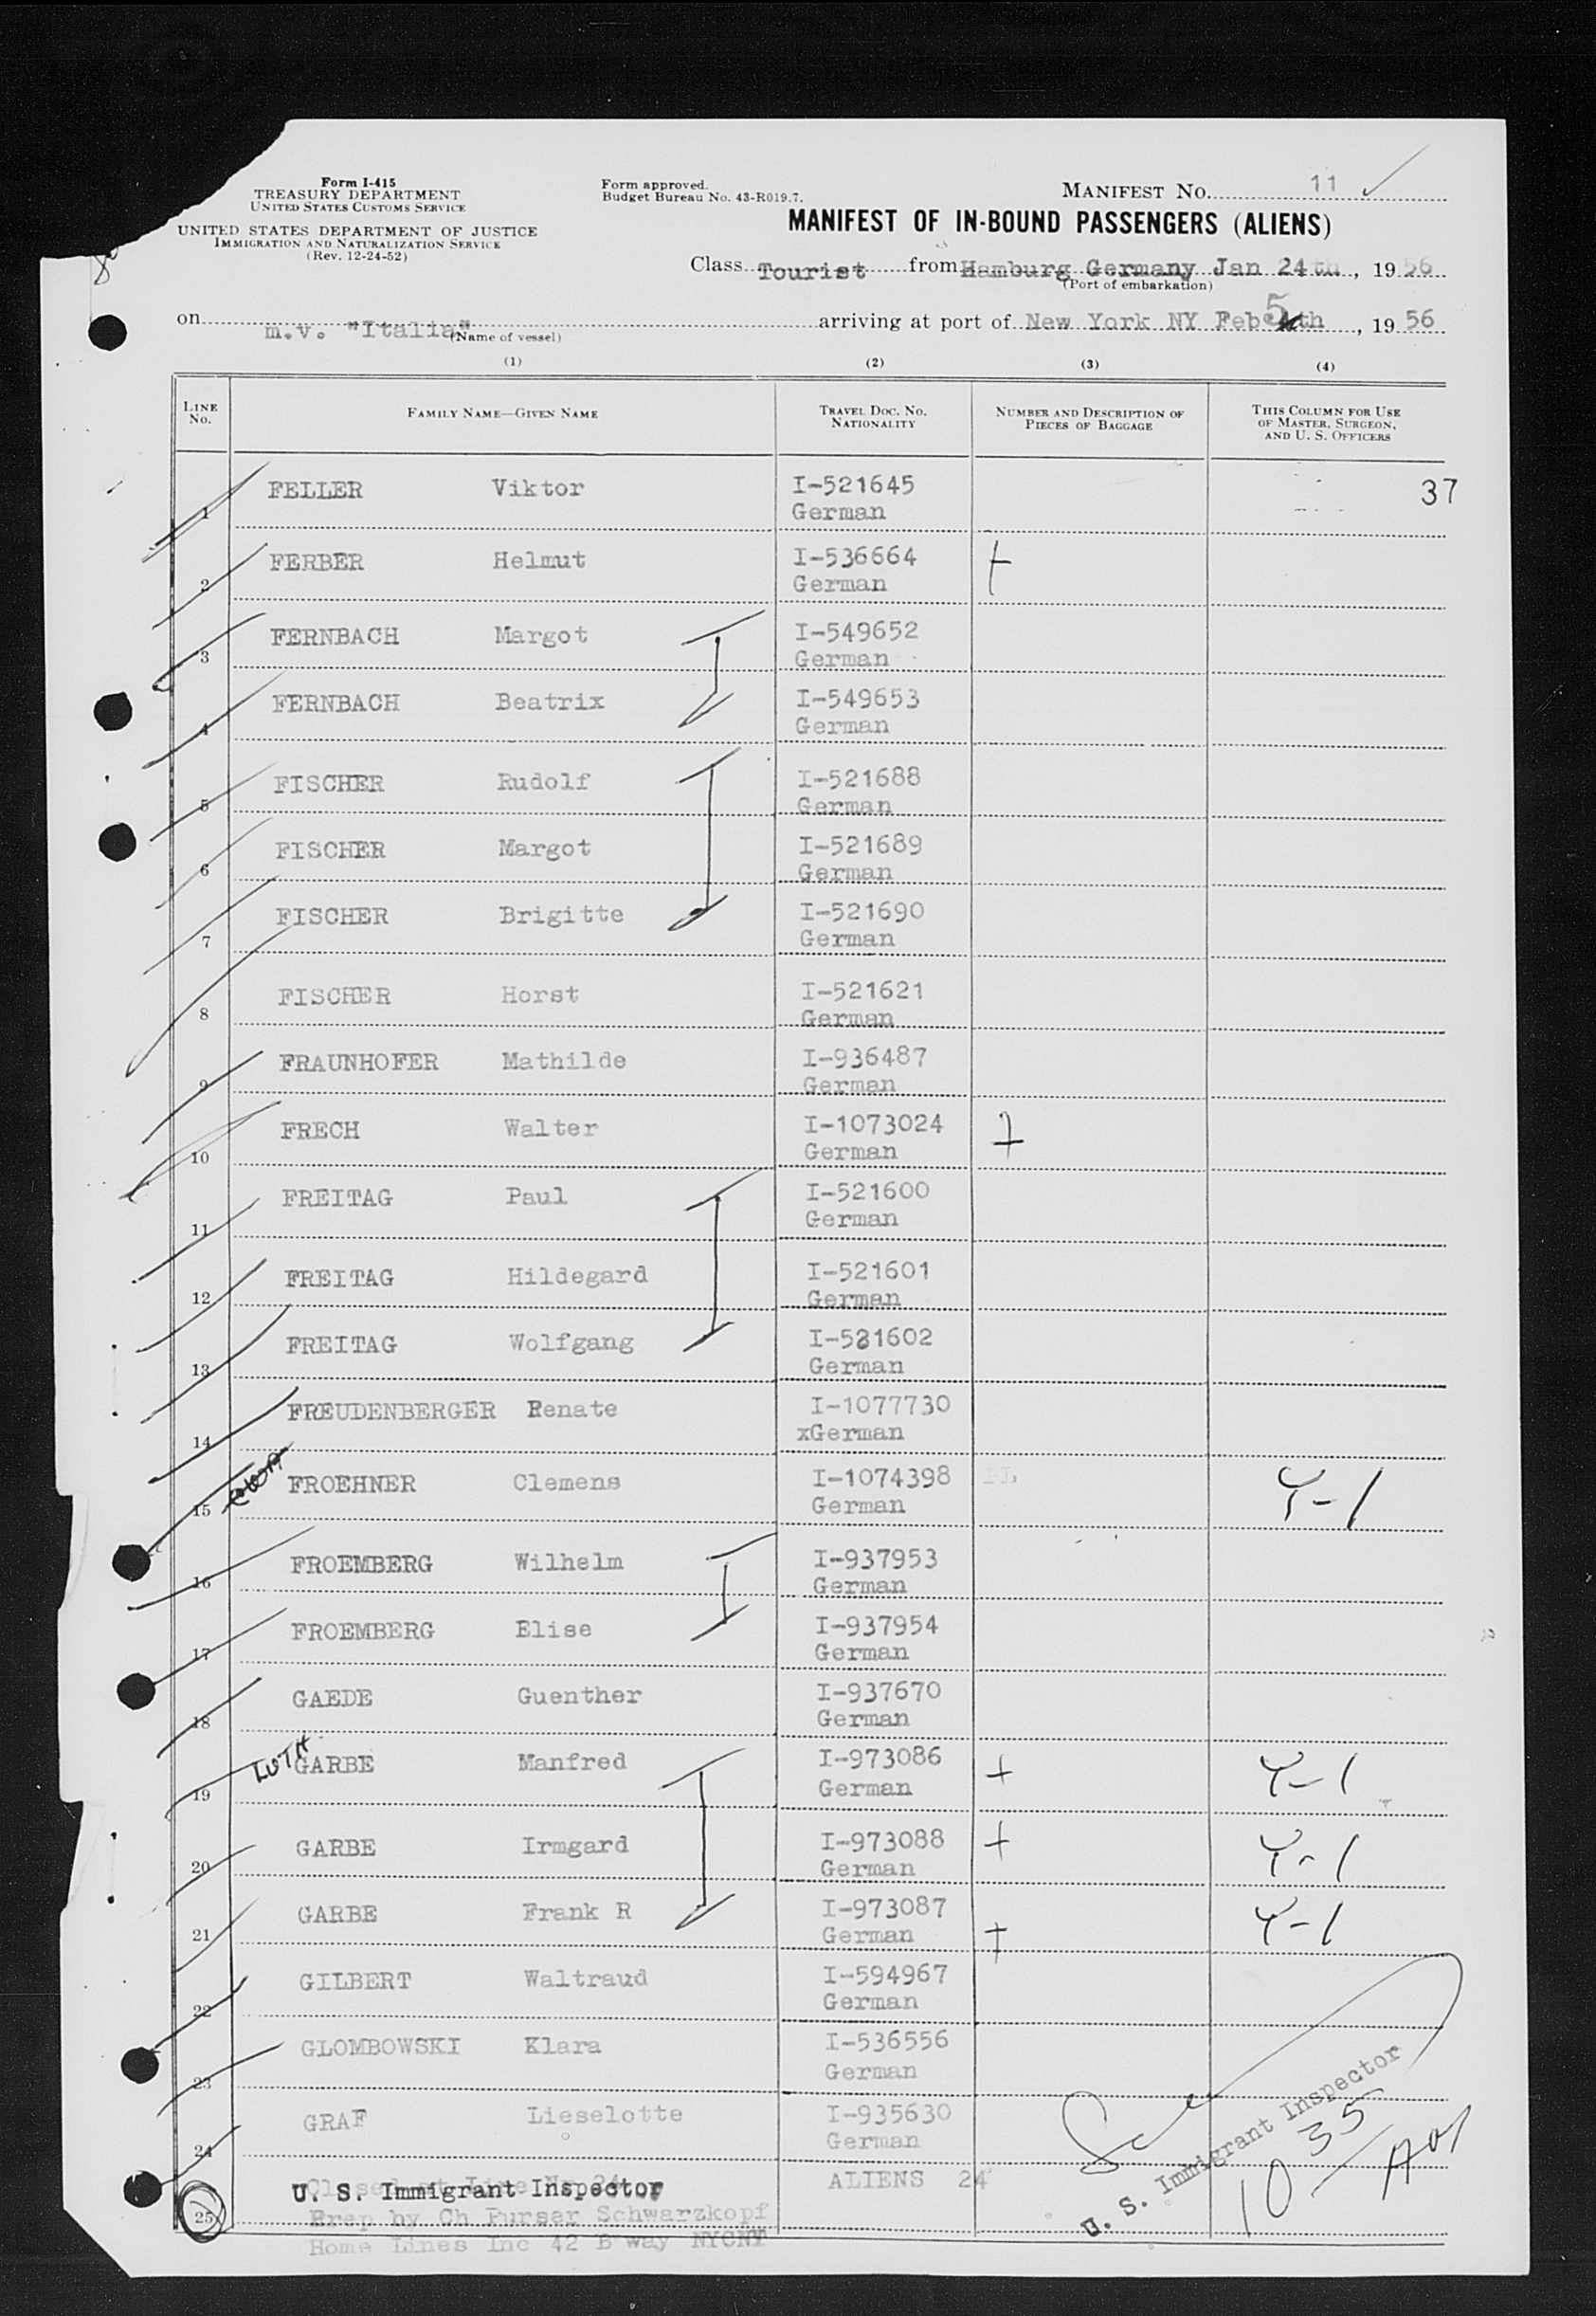 Form I-415
TREASURY DEPARTMENT
UNITED STATES CUSTOMS SERVICE
UNITED STATES DEPARTMENT OF JUSTICE
IMMIGRATION AND NATURALIZATION SERVICE
(Rev. 12-24-52)
Form approved.
Budget Bureau No. 43-R019.7.
MANIFEST NO. 11
MANIFEST OF IN-BOUND PASSENGERS (ALIENS)
Class Tourist from Hamburg Germany Jan 24th, 1956
(Port of embarkation)
on m.v. "Italia" arriving at port of New York NY Feb 5th, 1956
(Name of vessel)
(1) (2) (3) (4)
LINE No. FAMILY NAME—GIVEN NAME TRAVEL DOC. NO. NATIONALITY NUMBER AND DESCRIPTION OF PIECES OF BAGGAGE THIS COLUMN FOR USE OF MASTER, SURGEON, AND U. S. OFFICERS
1 FELLER Viktor I-521645 37
German
2 FERBER Helmut I-536664
German
3 FERNBACH Margot I-549652
German
4 FERNBACH Beatrix I-549653
German
5 FISCHER Rudolf I-521688
German
6 FISCHER Margot I-521689
German
7 FISCHER Brigitte I-521690
German
8 FISCHER Horst I-521621
German
9 FRAUNHOFER Mathilde I-936487
German
10 FRECH Walter I-1073024
German
11 FREITAG Paul I-521600
German
12 FREITAG Hildegard I-521601
German
13 FREITAG Wolfgang I-521602
German
14 FREUDENBERGER Renate I-1077730
xGerman
15 FROEHNER Clemens I-1074398 Y-1
German
16 FROEMBERG Wilhelm I-937953
German
17 FROEMBERG Elise I-937954
German
18 GAEDE Guenther I-937670
German
19 LUTH GARBE Manfred I-973086 + Y-1
German
20 GARBE Irmgard I-973088 + Y-1
German
21 GARBE Frank R I-973087 + Y-1
German
22 GILBERT Waltraud I-594967
German
23 GLOMBOWSKI Klara I-536556
German
24 GRAF Lieselotte I-935630
German
Closed at Line Nr 24 ALIENS 24
U. S. Immigrant Inspector
25 Prep by Ch Purser Schwarzkopf
Home Lines Inc 42 B'way NYCNY
U. S. Immigrant Inspector
10 35